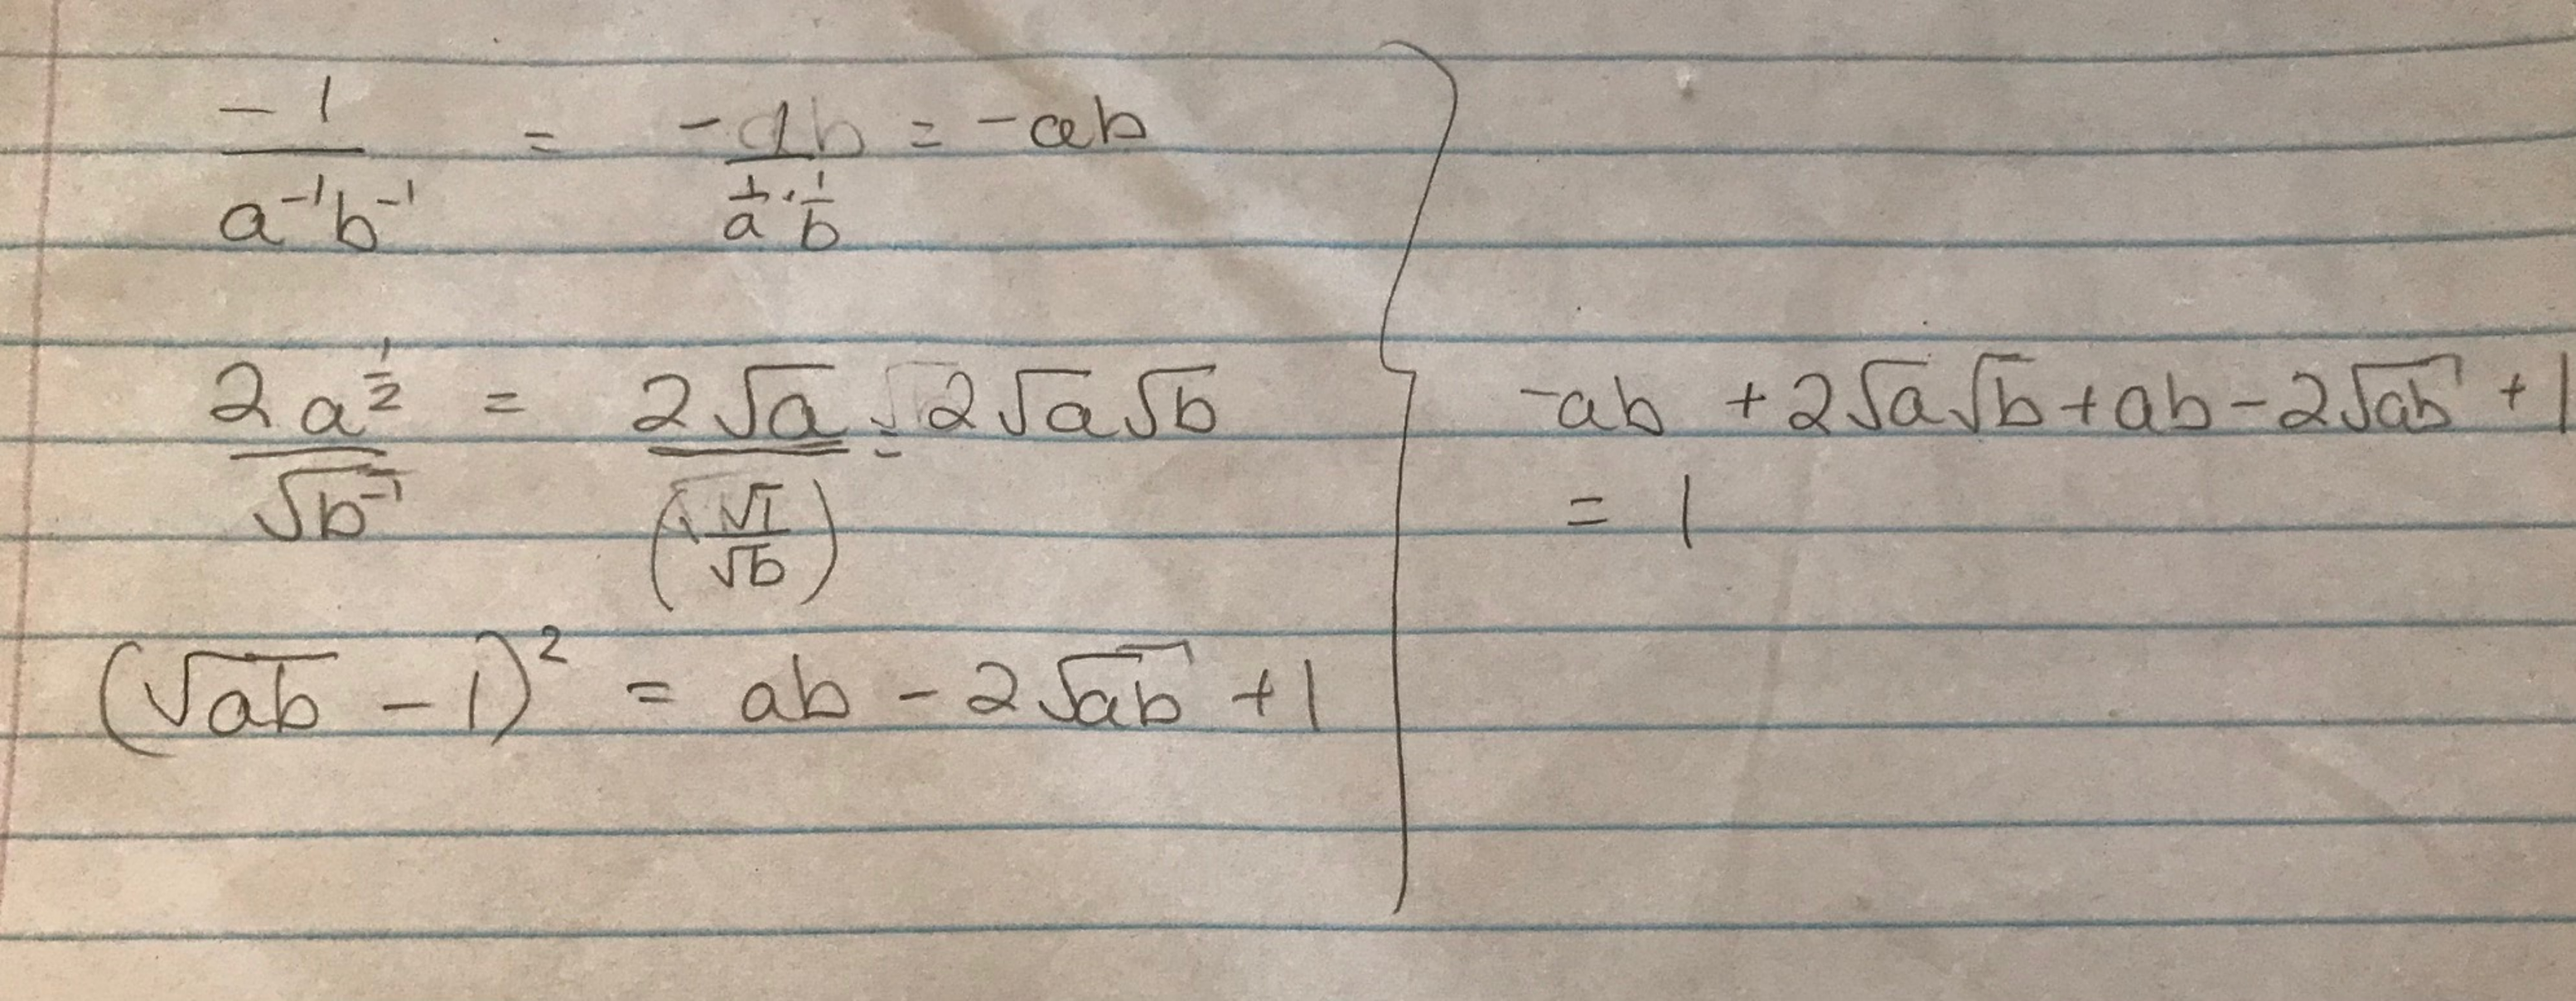 -1/(a⁻¹b⁻¹) = -1/(1/a · 1/b) = -ab
2a^(1/2)/√(b⁻¹) = 2√a/(√1/√b) = 2√a√b
(√(ab) - 1)² = ab - 2√(ab) + 1
-ab + 2√a√b + ab - 2√(ab) + 1
= 1